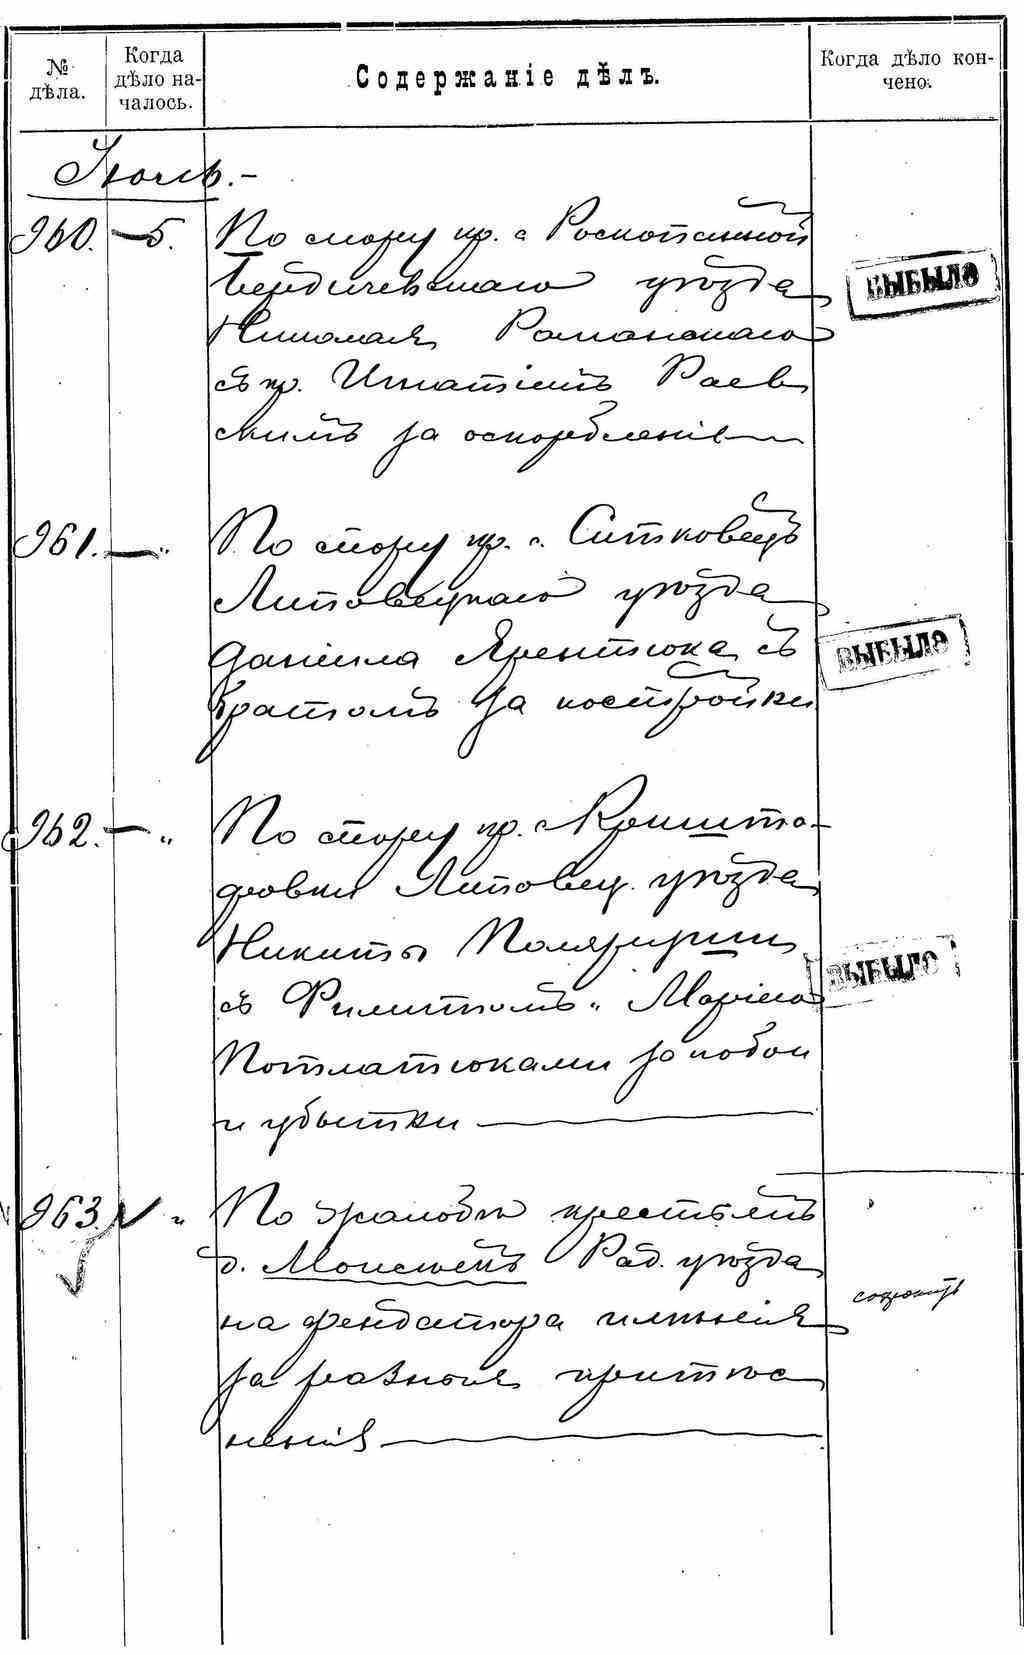 № дѣла.
Когда дѣло началось.
Содержаніе дѣлъ.
Когда дѣло кончено.
Іюль.-
960. — 5. По спору кр. с Роскопанной
Бердичевскаго уѣзда
Николая Романскаго
съ кр. Игнатіемъ Раев
скимъ за оскорбленіе
ВЫБЫЛО
961. — „ По спору кр. с. Ситковецъ
Липовецкаго уѣзда
Даніила Яремтюка съ
братомъ за постройки
ВЫБЫЛО
962. — „ По спору кр. с Кришто-
фовки Липовец. уѣзда
Никиты
съ и Маріею
за побои
и убытки
ВЫБЫЛО
963. „ По жалобѣ крестьянъ
д. Рад. уѣзда
на арендатора имѣнія
за разныя притѣс
ненія